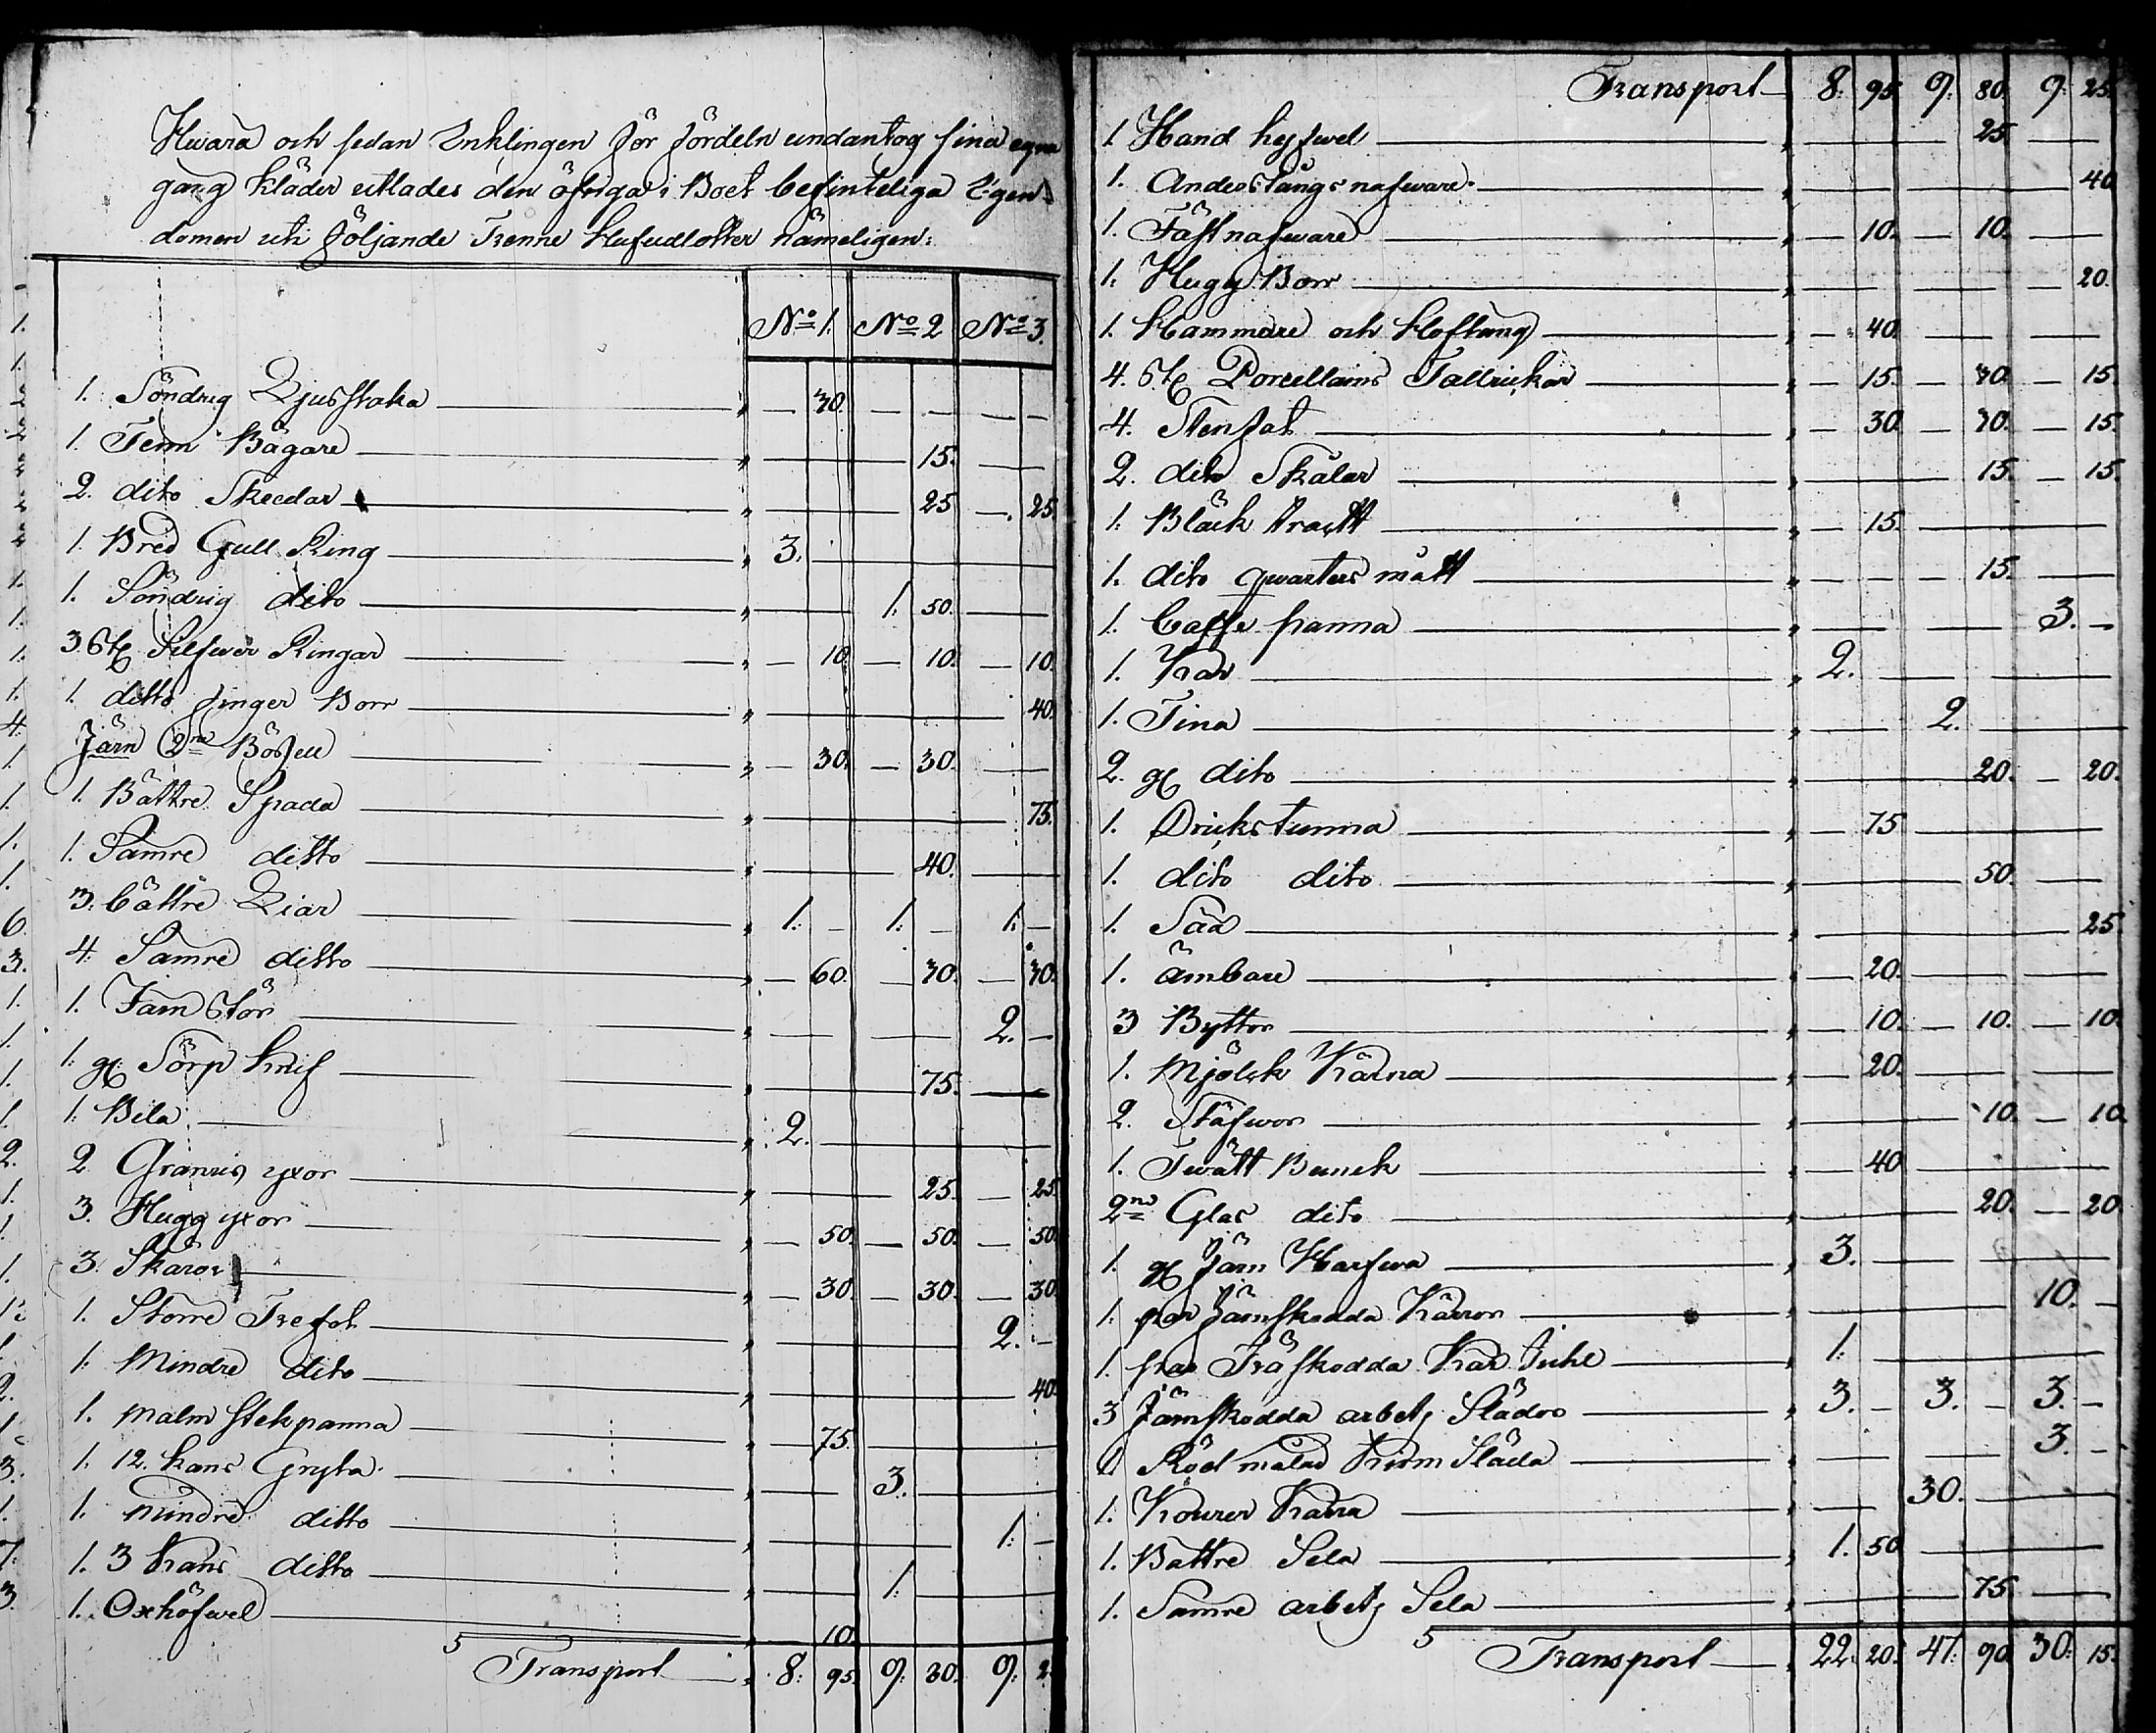 Hwara och sedan Enklingen för fördeln undantog sina egna
gang kläder utlades den öfriga i Boet befinteliga Egen-
domen uti följande Trenne Hufvudlotter nämeligen:
No 1. No 2 No 3.
1. Söndrig Ljusstaka 30.
1. Tenn Bägare 15.
2. dito Skeedar 25 25.
1. Bred Gull Ring 3.
1. Söndrig dito 1. 50.
3 St Silfwer Ringar 10. 10. 10.
1. ditto finger Borr 40.
Järn 2ne Bösfell 30. 30.
1. Bättre Spada 75.
1. Sämre ditto 40.
3. bättre Liar 1. 1. 1.
4. Sämre ditto 60. 30. 30.
1. Jarnstör 2.
1. gl Sörp knif 75.
1. Bila 2.
2 Granris yxor 25. 25.
3. Hugg yxor 50. 50. 50.
3. Skäror 30. 30. 30.
1. Storre Trefot 2.
1. Mindre dito 40.
1. malm stekpanna 75.
1. 12. kans Gryta 3.
1. mindre ditto 1.
1. 3 kans ditto 1.
1. Oxhöfwel 10.
Transport 8. 95. 9. 30. 9. 2
Transport 8. 95. 9. 80. 9. 25.
1. Hand hyfwel 25.
1. Andorstångs nafware 40
1. Fästnafware 10. 10.
1. Hugg Borr 20.
1. Hammare och Hoftång 40.
4. St Porcellains Tallrickar 15. 30. 15.
4. Stenfat 30. 30. 15.
2. dito Skålar 15. 15.
1. Bläck tractt 15.
1. dito qwarters mått 15.
1. Caffe panna 3.
1. Kar 2.
1. Tina 2.
2. gl dito 20. 20.
1. Drickstunna 75
1. dito dito 50.
1. Såa 25.
1. ämbare 20.
3 Byttor 10. 10. 10.
1. Mjölck Kärna 20.
2. Stäfwor 10. 10.
1. Twätt Bunck 40
2ne Glas dito 20. 20
1. gl Järn Harfwa 3.
1. par Järnskodda Kärror 10.
1. par Träskodda Kär hiul 1.
3 Järnskodda arbets Slädor 3. 3. 3.
1 Röd målad Slläda 3.
1. Kourer Kärra 30.
1. Battre Sela 1. 50
1. Samre arbets Sela 75.
Transport 22. 20. 47. 90. 30. 15.